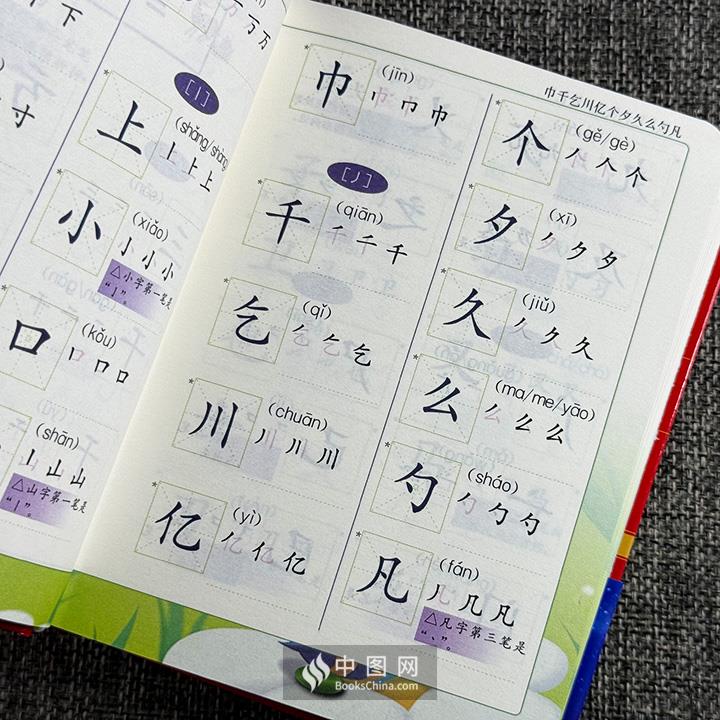 下
万 万 万
寸
[丨]
上
(shǎng/shàng)
上 上 上
小
(xiǎo)
小 小 小
△小字第一笔是
“亅”。
口
(kǒu)
口 口 口
(shān)
山 山 山
△山字第一笔是
“丨”。
巾
(jīn)
巾 巾 巾
[丿]
千
(qiān)
千 千 千
乞
(qǐ)
乞 乞 乞
川
(chuān)
川 川 川
亿
(yì)
亿 亿 亿
巾千乞川亿个夕久么勺凡
个
(gě/gè)
个 个 个
夕
(xī)
夕 夕 夕
久
(jiǔ)
久 久 久
么
(ma/me/yāo)
么 么 么
勺
(sháo)
勺 勺 勺
凡
(fán)
几 几 凡
△凡字第三笔是
“、”。
中图网
BooksChina.com